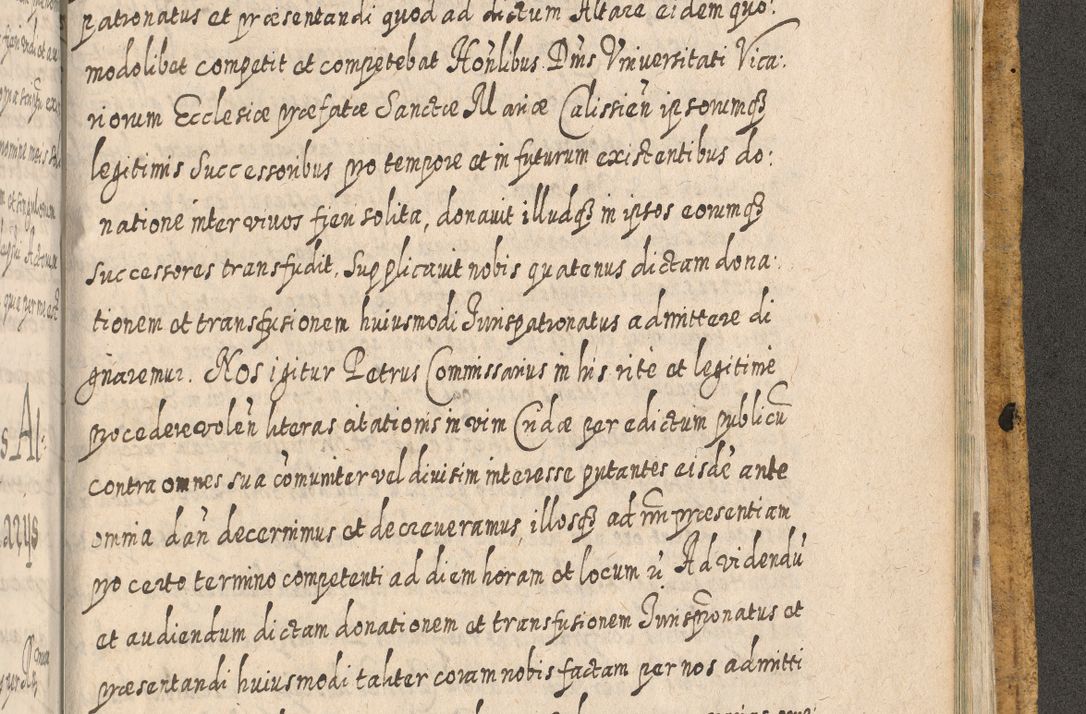 patronatus et præsentandi quod ad dictum Altare eidem quo:
modolibet competit et competebat Honlibus Dnis Vniuersitati Vica:
riorum Ecclesiæ præfatæ Sanctæ Mariæ Calissien ipsorumq3
legitimis Successoribus pro tempore et in futurum existentibus do:
natione inter viuos fieri solita, donauit illudq3 in ipsos eorumq3
successores transfudit, Supplicauit nobis quatenus dictam dona:
tionem et transfusionem huiusmodi Jurispatronatus admittere di
gnaremur. Nos igitur Petrus Commissarius in his rite et legitime
procedere volen literas citationis in vim Cridæ per edictum publicu
contra omnes sua comuniter vel diuisim interesse putantes eisde ante
omnia dan decernimus et decreueramus, illosq3 ad nri præsentiam
pro certo termino competenti ad diem horam et locum
Ad videndu
et audiendum dictam donationem et transfusionem Jurispronatus et
præsentandi huiusmodi taliter coram nobis factam per nos admitti